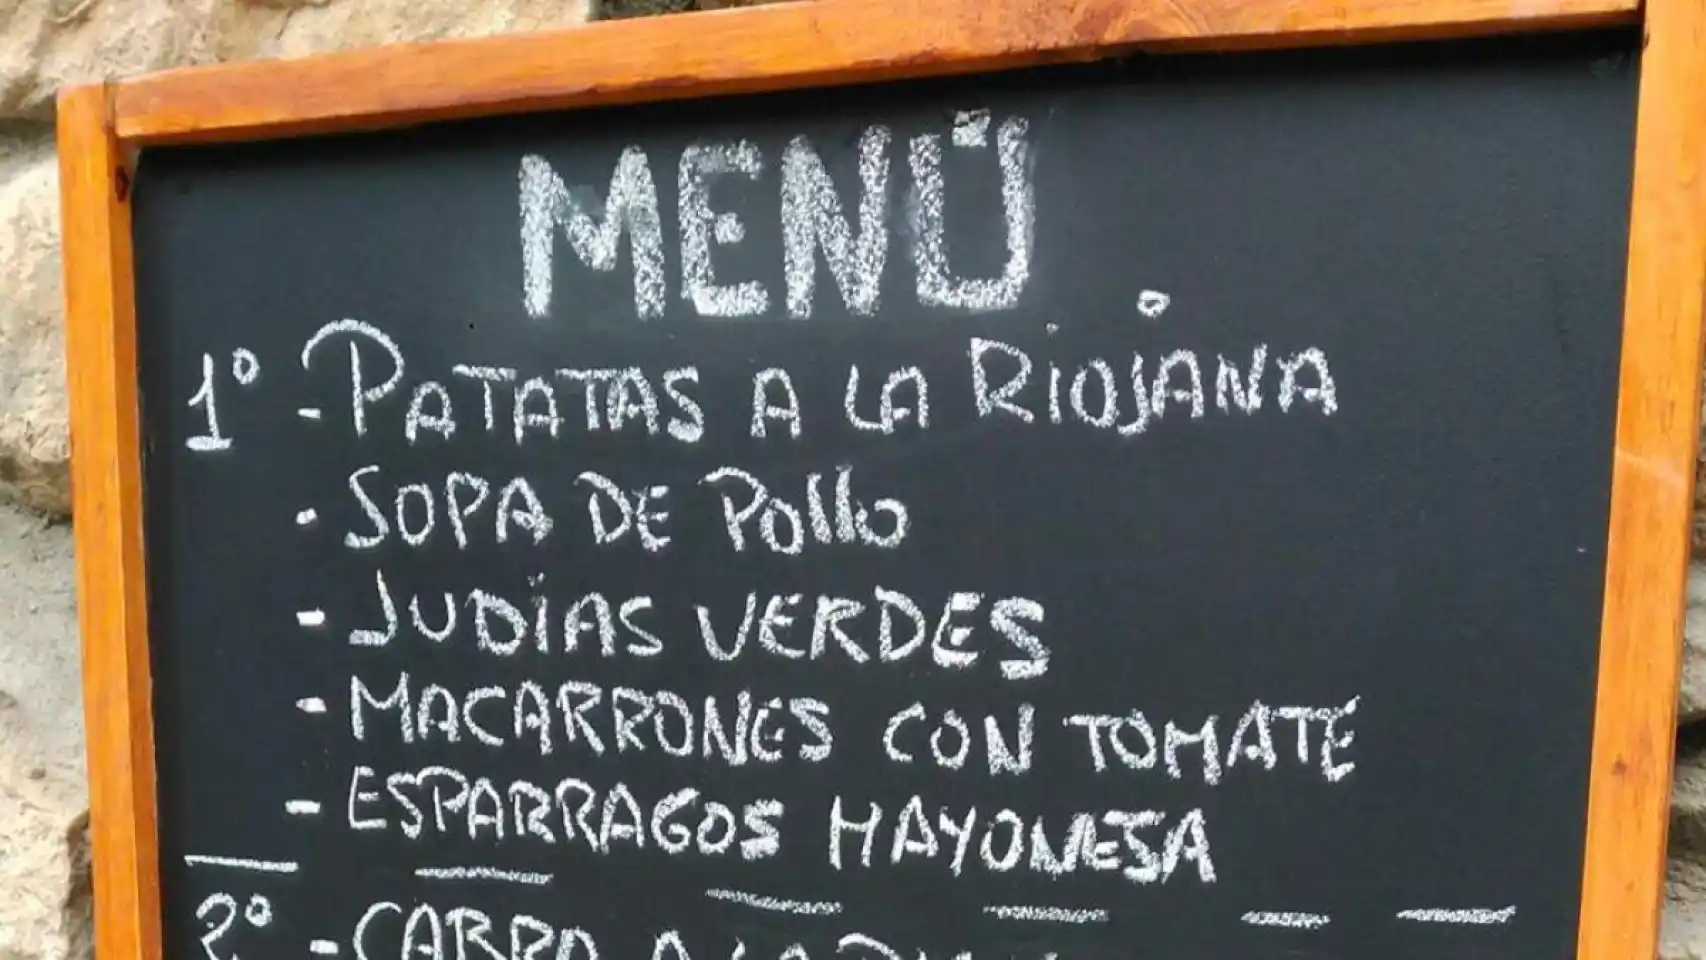 MENÚ
1º - PATATAS A LA RIOJANA
· SOPA DE POLLO
- JUDÍAS VERDES
- MACARRONES CON TOMATE
- ESPARRAGOS MAYONESA
2º - A LA